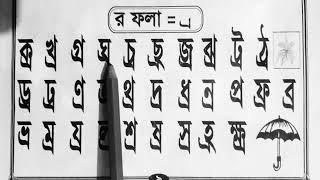 র ফলা = ্র
ক্র খ্র গ্র ঘ্র চ্র ছ্র জ্র ঝ্র ট্র ঠ্র
ড্র ঢ্র ণ্র ত্র থ্র দ্র ধ্র ন্র প্র ফ্র ব্র
ভ্র ম্র য্র ল্র শ্র ষ্র স্র হ্র ক্ষ্র